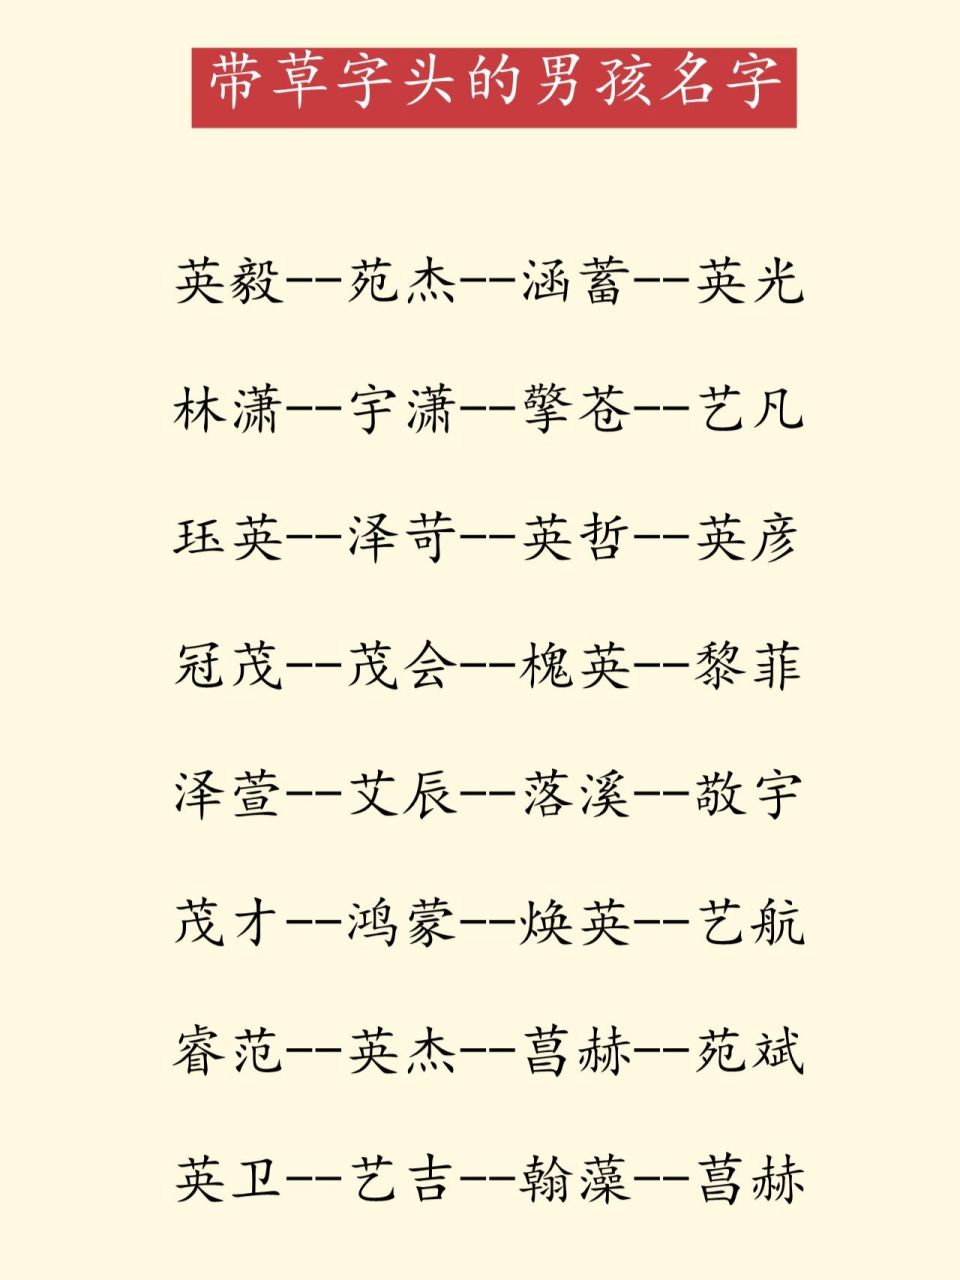 带草字头的男孩名字
英毅--苑杰--涵蓄--英光
林潇--宇潇--擎苍--艺凡
珏英--泽苛--英哲--英彦
冠茂--茂会--槐英--黎菲
泽萱--艾辰--落溪--敬宇
茂才--鸿蒙--焕英--艺航
睿范--英杰--菖赫--苑斌
英卫--艺吉--翰藻--菖赫